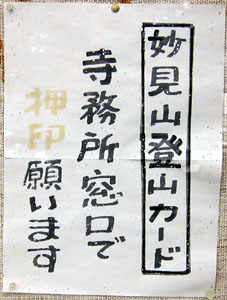 妙見山登山カード
寺務所窓口で
押印願います